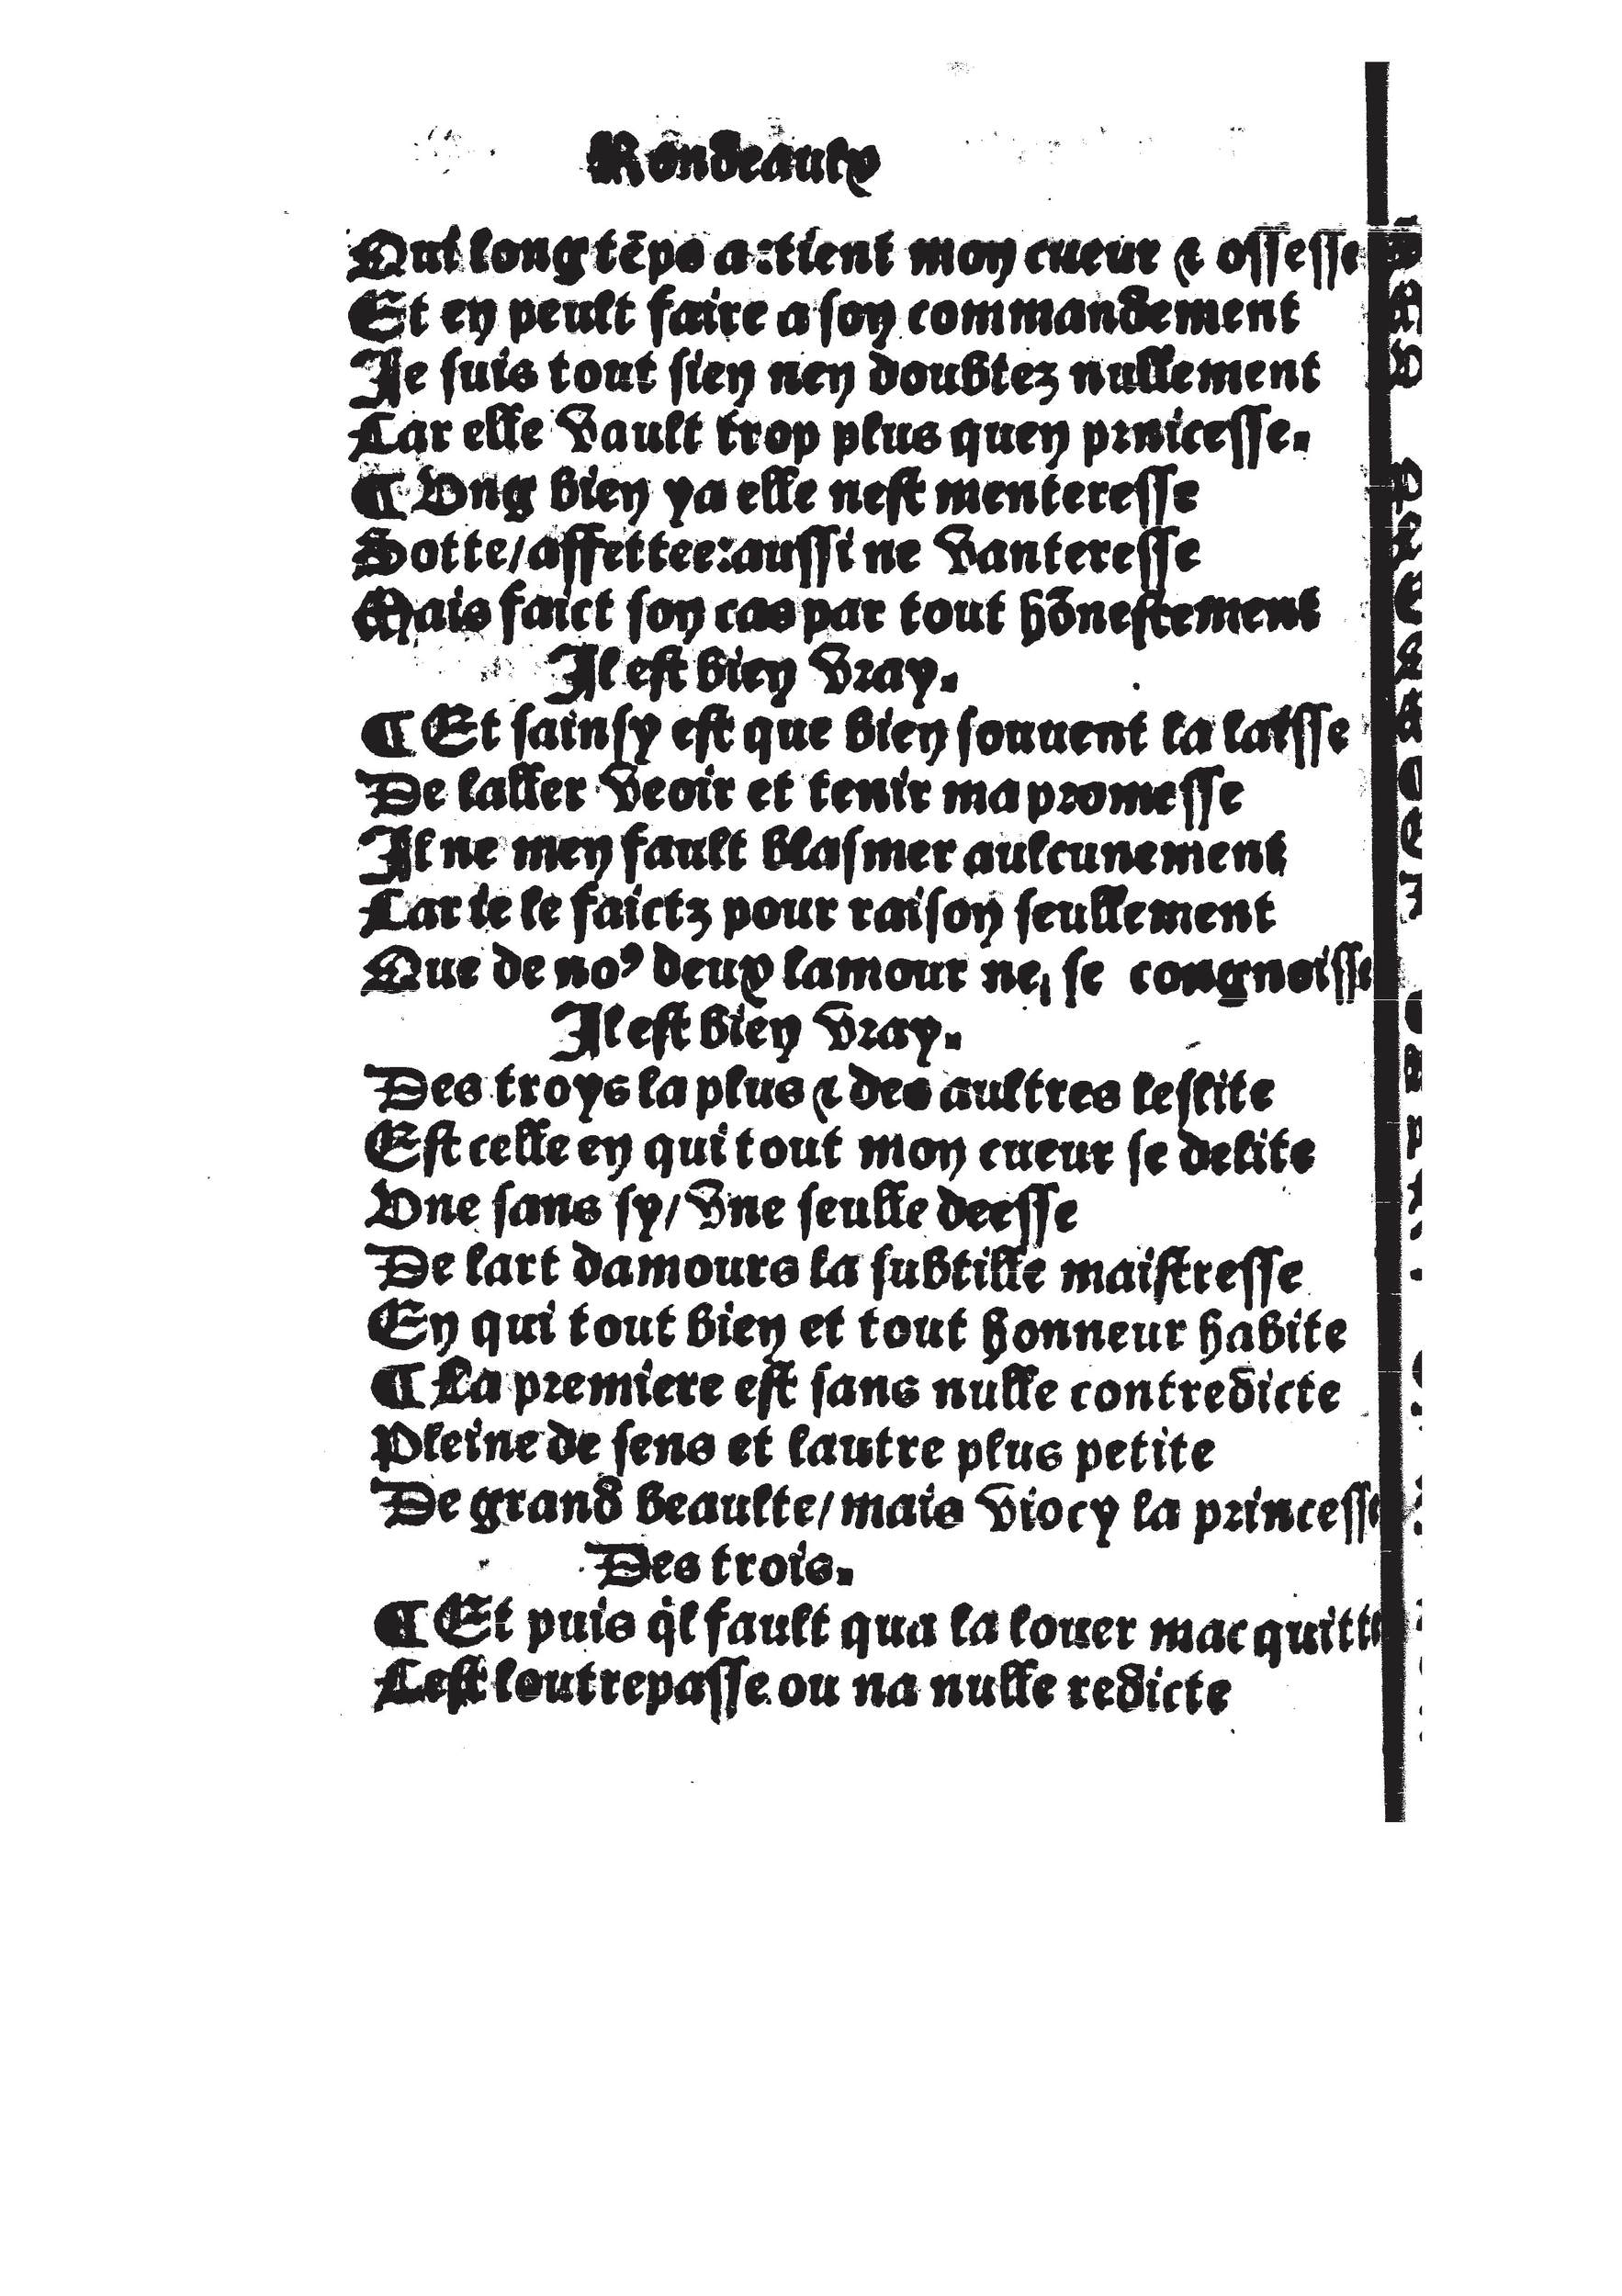 Rondeaulx
Qui long tēps a:tient mon cueur & ossesse
Et en peult faire a son commandement
Je suis tout sien nen doubtez nullement
Car elle vault trop plus quen prnicesse.
¶ Ung bien ya elle nest menteresse
Sotte/affettee:aussi ne vanteresse
Mais faict son cas par tout hōnestement
Il est bien vray.
¶ Et sainsy est que bien souuent la laisse
De laller veoir et tenir ma promesse
Il ne men fault blasmer aulcunement
Car ie le faictz pour raison seullement
Que de noꝰ deux lamour ne se congnoisse
Il est bien vray.
Des troys la plus & des aultres leslite
Est celle en qui tout mon cueur se delite
Vne sans sy/vne seulle deesse
De lart damours la subtille maistresse
En qui tout bien et tout honneur habite
¶ La premiere est sans nulle contredicte
Pleine de sens et lautre plus petite
De grand beaulte/mais viocy la princesse
Des trois.
¶ Et puis q̇l fault qua la louer mac quitte
Cest loutrepasse ou na nulle redicte